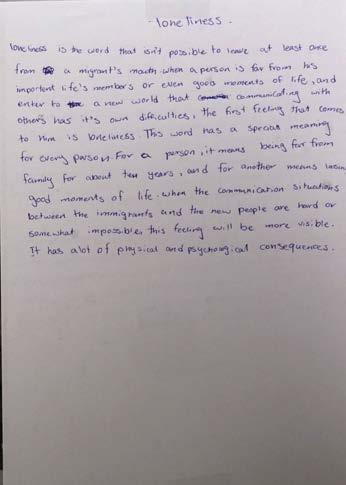 - loneliness .
loneliness is the word that isn't possible to leave at least once
from a migrant's mouth. when a person is far from his
important life's members or even good moments of life, and
enter to a new world that communicating with
others has it's own dificulties, the first feeling that comes
to him is loneliness. This word has a special meaning
for every person. For a person, it means being far from
family for about ten years, and for another means losin
good moments of life. when the communication situations
between the immigrants and the new people are hard or
somewhat impossible, this feeling will be more visible.
It has alot of physical and psychological consequences.